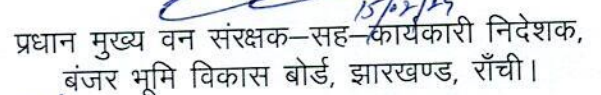 15/02/27
प्रधान मुख्य वन संरक्षक–सह–कार्यकारी निदेशक,
बंजर भूमि विकास बोर्ड, झारखण्ड, राँची।